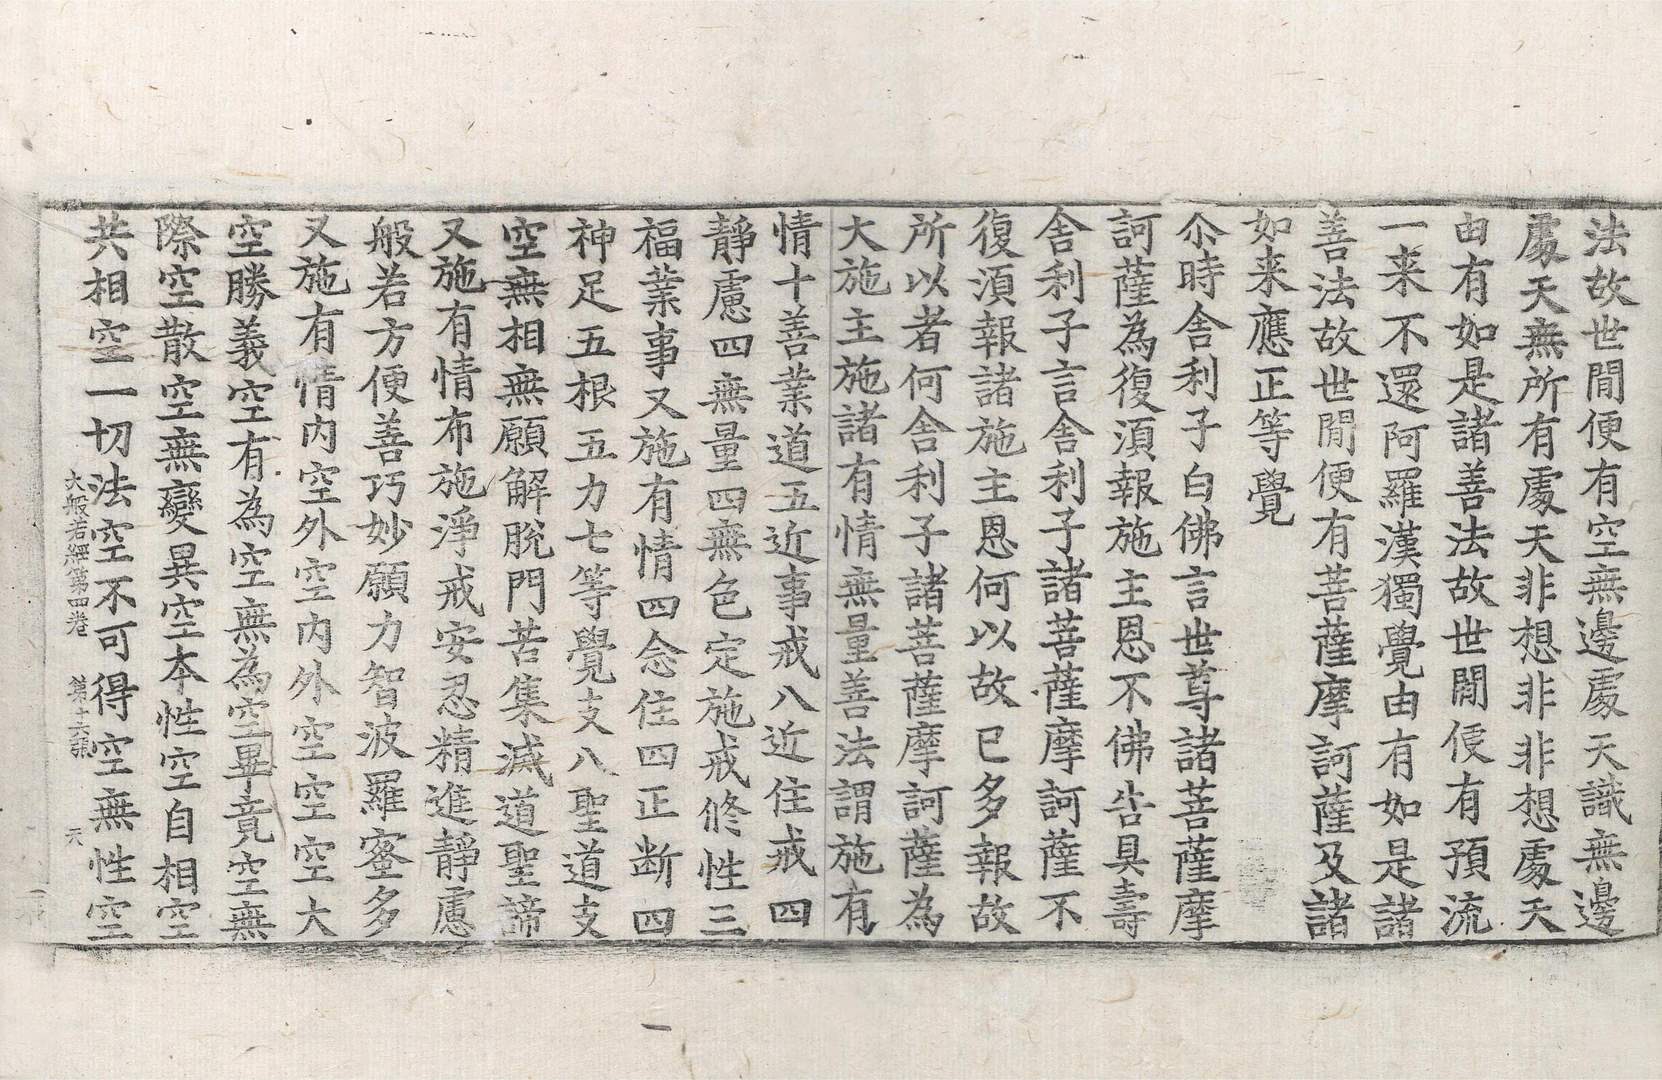 法故世閒便有空無邊處天識無邊
處天無所有處天非想非非想處天
由有如是諸善法故世閒便有預流
一来不還阿羅漢獨覺由有如是諸
善法故世閒便有菩薩摩訶薩及諸
如来應正等覺
尒時舍利子白佛言世尊諸菩薩摩
訶薩為復須報施主恩不佛告具壽
舍利子言舍利子諸菩薩摩訶薩不
復須報諸施主恩何以故已多報故
所以者何舍利子諸菩薩摩訶薩為
大施主施諸有情無量善法謂施有
情十善業道五近事戒八近住戒四
靜慮四無量四無色定施戒修性三
福業事又施有情四念住四正断四
神足五根五力七等覺支八聖道支
空無相無願解脫門苦集滅道聖諦
又施有情布施淨戒安忍精進靜慮
般若方便善巧妙願力智波羅蜜多
又施有情内空外空内外空空空大
空勝義空有為空無為空畢竟空無
際空散空無變異空本性空自相空
共相空一切法空不可得空無性空
大般若經第四卷 第十六張 六